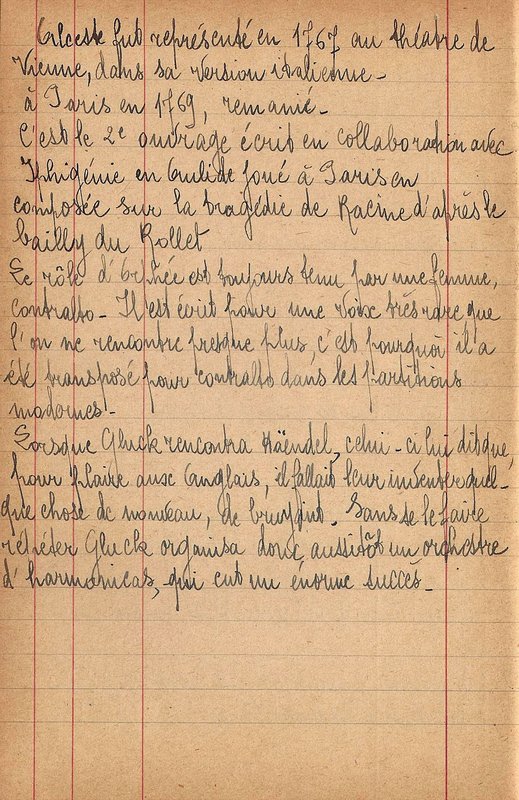 Alceste fut représenté en 1767 au théatre de
Vienne, dans sa version italienne -
à Paris en 1769, remanié -
C'est le 2e ouvrage écrit en collaboration avec
Iphigénie en Aulide joué à Paris en
composée sur la tragédie de Racine d'après le
bailly du Rollet
Le rôle d'Orphée est toujours tenu par une femme,
contralto - Il est écrit pour une voix très rare que
l'on ne rencontre presque plus, c'est pourquoi il a
été transposé pour contralto dans les partitions
modernes -
Lorsque Gluck rencontra Häendel, celui-ci lui dit que,
pour plaire aux Anglais, il fallait leur inventer quel-
que chose de nouveau, de bruyant. Sans se le faire
répéter Gluck organisa donc aussitôt un orchestre
d'harmonicas, qui eut un énorme succès -